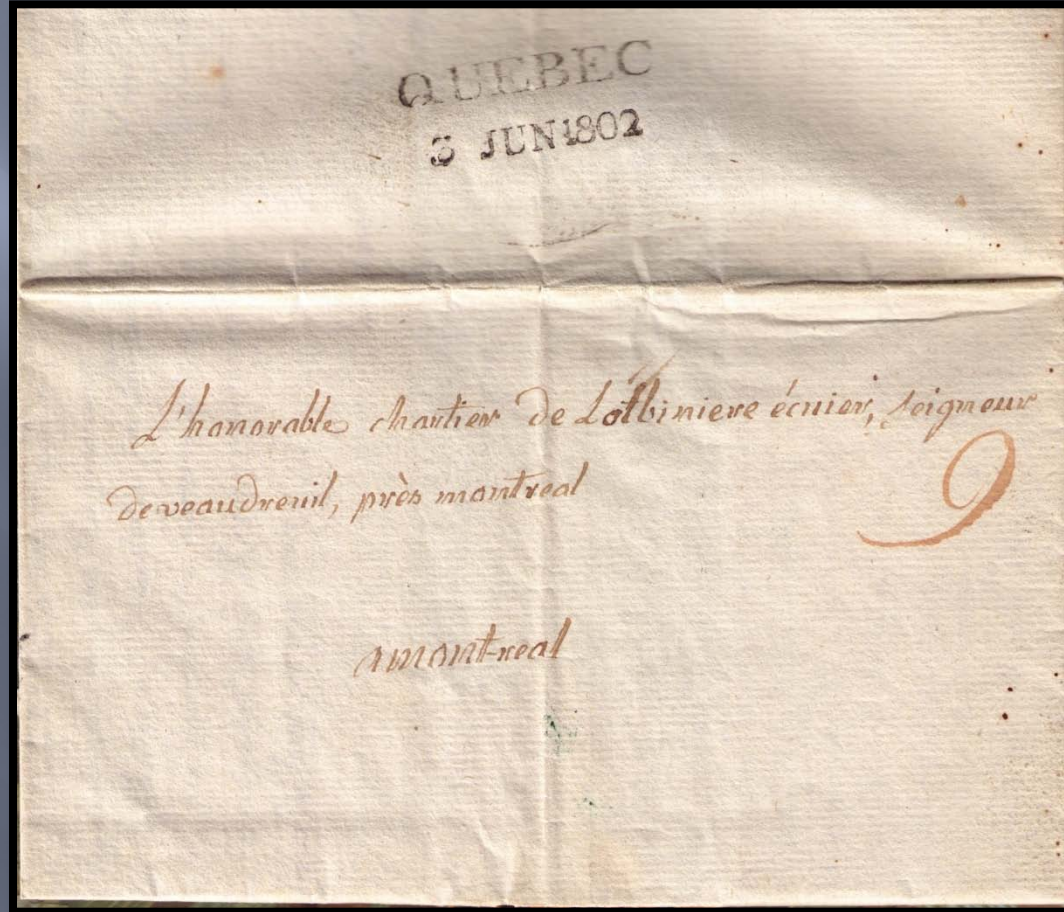 QUEBEC
3 JUN 1802
L'honorable chartier De Lotbiniere écuier, seigneur
9
De veaudreuil, près montreal
a montreal